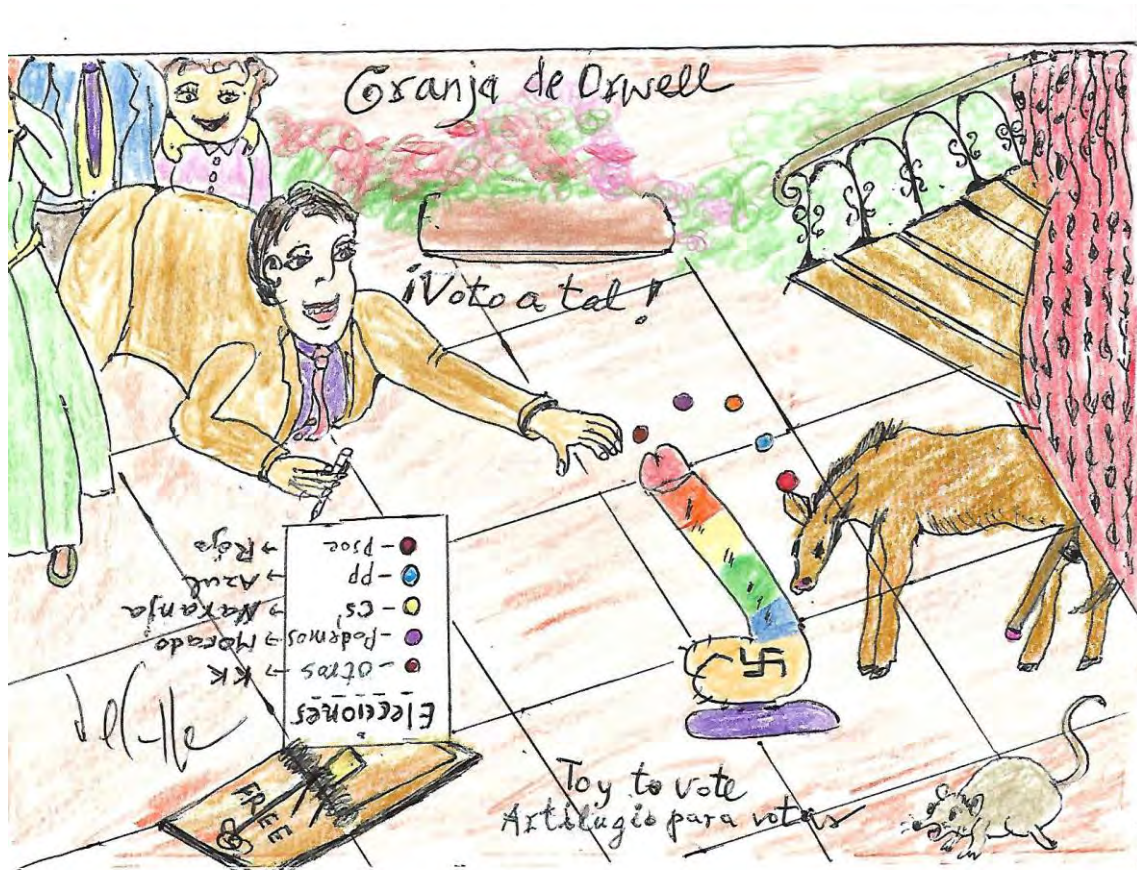 Granja de Orwell
¡Voto a tal!
Elecciones
- otros → KK
- Podemos → Morado
- Cs → Naranja
- PP → Azul
- Psoe → Rojo
FREE
Toy to vote
Artilugio para votar